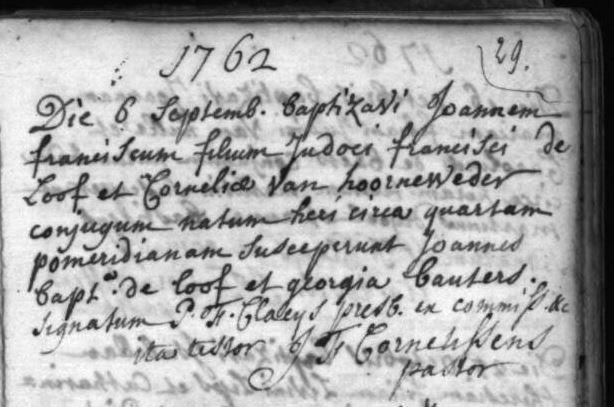 1762
29.
Die 6 Septemb. baptizavi Joannem
franciscum filium Judoci francisci de
Loof et Corneliæ Van hoorneweder
conjugum natum heri circa quartam
pomeridianam susceperunt Joannes
bapt.a de loof et georgia bauters.
signatum P. F. Claeys presb. ex commiss. &c
ita testor J F Cornelissens
pastor